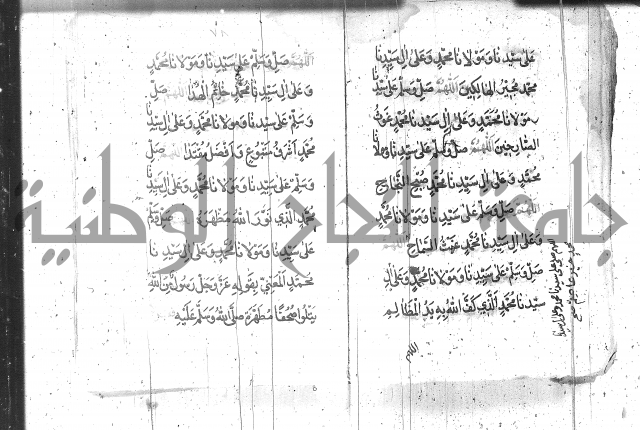 على سيدنا ومولانا محمد وعلى ال سيدنا
محمد مجير الهالكين اللهم صل وسلم على سيدنا
ومولانا محمد وعلى ال سيدنا محمد غوث
السارحين اللهم صل وسلم على سيدنا ومولانا
محمد وعلى ال سيدنا محمد صبح النجاح
اللهم صل وسلم على سيدنا ومولانا محمد
وعلى ال سيدنا محمد غيث السماح اللهم
صل وسلم على سيدنا ومولانا محمد وعلى ال
سيدنا محمد الذي كف الله به يد المظالم
اللهم
اللهم صل وسلم على سيدنا ومولانا محمد
وعلى ال سيدنا محمد خاتم اللهم صل
وسلم على سيدنا ومولانا محمد وعلى ال سيدنا
محمد اشرف متبوع وافضل مقتدا اللهم صل
وسلم على سيدنا ومولانا محمد وعلى ال سيدنا
محمد الذي نور الله مظهره صل وسلم
على سيدنا ومولانا محمد وعلى ال سيدنا
محمد المعني بقوله عز وجل رسول من الله
يتلوا صحفا مطهرة صلى الله وسلم عليه
٧٨
جامعة النجاح الوطنية